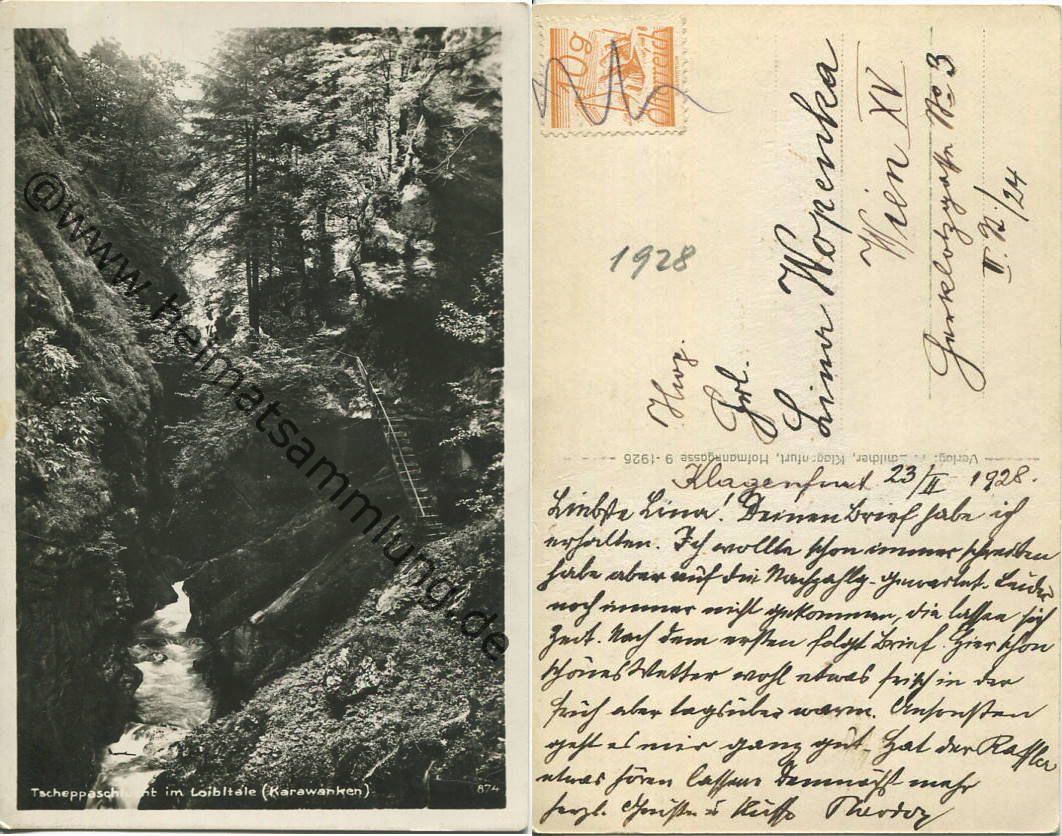 @www.heimatsammlung.de
Tscheppaschlucht im Loibltale (Karawanken)
874
10g
Österreich
1928
Hwg.
Frl.
Lina Wopenka
Wien XV
No 3
II. N. 1/24
Verlag: F. Schilder, Klagenfurt, Hofmanngasse 9 - 1925
Klagenfurt 23/II 1928.
Liebste Lina! Deinen Brief habe ich
erhalten. Ich wollte schon immer schreiben
habe aber auf die Nachzahlg. gewartet. Leider
noch immer nicht gekommen, die lassen sich
Zeit. Nach dem ersten folgt Brief. Hier schon
schönes Wetter wohl etwas frisch in der
früh aber tagsüber warm. Ansonsten
geht es mir ganz gut. Hat der
etwas hören lassen Demnächst mehr
herzl. Grüße u Küsse Theodor